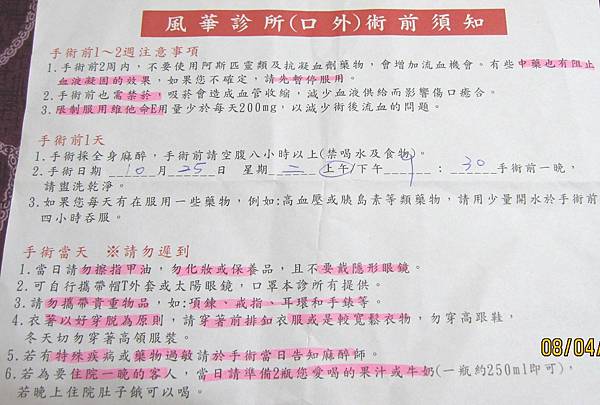 風華診所(口外)術前須知
手術前1～2週注意事項
1.手術前2周內,不要使用阿斯匹靈類及抗凝血劑藥物,會增加流血機會。有些中藥也有阻止
血液凝固的效果,如果您不確定,請先暫停服用。
2.手術前也需禁菸,吸菸會造成血管收縮,減少血液供給而影響傷口癒合。
3.限制服用維他命E用量少於每天200mg,以減少術後流血的問題。
手術前1天
1.手術採全身麻醉,手術前請空腹八小時以上(禁喝水及食物)。
2.手術日期 10 月 25 日 星期 二 上午/下午 : 30 手術前一晚,
請盥洗乾淨。
3.如果您每天有在服用一些藥物,例如:高血壓或胰島素等類藥物,請用少量開水於手術前
四小時吞服。
手術當天 ※請勿遲到
1.當日請勿擦指甲油,勿化妝或保養品,且不要戴隱形眼鏡。
2.可自行攜帶帽T外套或太陽眼鏡,口罩本診所有提供。
3.請勿攜帶貴重物品,如:項鍊、戒指、耳環和手錶等。
4.衣著以好穿脫為原則,請穿著前排釦衣服或是較寬鬆衣物,勿穿高跟鞋,
冬天切勿穿著高領服裝。
5.若有特殊疾病或藥物過敏請於手術當日告知麻醉師。
6.若為要住院一晚的客人,當日請準備2瓶您愛喝的果汁或牛奶(一瓶約250ml即可),
若晚上住院肚子餓可以喝。
08/04/